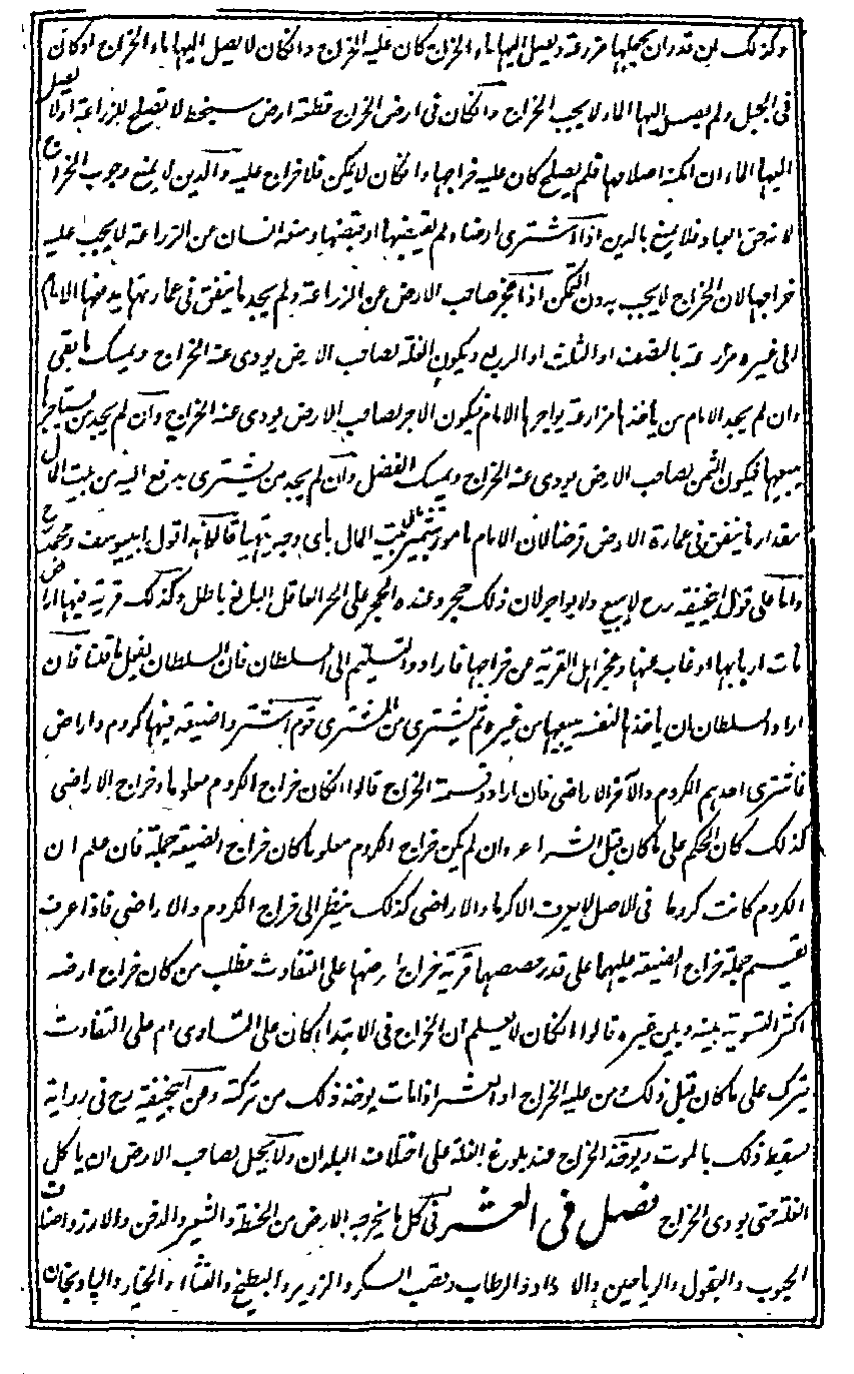 وكذلك ان قدر ان يجعلها مزرعة ويصل اليها ماء الخراج كان عليه الخراج وانكان لا يصل اليها ماء الخراج او كان
فى الجبل ولم يصل اليها الماء لا يجب الخراج وانكان فى ارض الخراج قطعة ارض سبخة لا تصلح للزراعة او لا يصل
اليها الماء ان امكنه اصلاحها فلم يصلح كان عليه خراجها وانكان لا يمكن فلا خراج عليه والدين لا يمنع وجوب الخراج
لانه حق العباد فلا يمنع بالدين اذا اشترى ارضا ولم يقبضها او قبضها ومنعه انسان عن الزراعة لا يجب عليه
خراجها لان الخراج لا يجب بدون التمكن اذا عجز صاحب الارض عن الزراعة ولم يجد ما ينفق فى عمارتها يدفعها الامام
الى غيره مزارعة بالنصف او الثلث او الربع ويكون الغلة لصاحب الارض يودى عنه الخراج ويمسك ما بقى
وان لم يجد الامام من ياخذها مزارعة يواجرها الامام فيكون الاجر لصاحب الارض يودى عنه الخراج وان لم يجد من يستاجرها
يبيعها فيكون الثمن لصاحب الارض يودى عنه الخراج ويمسك الفضل وان لم يجد من يشترى يدفع اليه من بيت المال
مقدار ما ينفق فى عمارة الارض قرضا لان الامام مامور بتثمير بيت المال باى وجه يتهيا قالوا هذا قول ابيوسف ومحمد رح
واما على قول ابيحنيفة رح لا يبيع ولا يواجر لان ذلك حجر وعنده الحجر على الحر العاقل البالغ باطل وكذلك قرية فيها اراض
مات اربابها او غاب عنها وعجز اهل القرية عن خراجها فارادوا التسليم الى السلطان فان السلطان يفعل ما قلنا فان
اراد السلطان ان ياخذها لنفسه يبيعها من غيره ثم يشترى من المشترى قوم اشتروا ضيعة فيها كروم واراض
فاشترى احدهم الكروم والآخر الاراضى فان ارادوا قسمة الخراج قالوا انكان خراج الكروم معلوما وخراج الاراضى
كذلك كان الحكم على ما كان قبل الشراء وان لم يكن خراج الكروم معلوما كان خراج الضيعة جملة فان علم ان
الكروم كانت كروما فى الاصل لا يعرف الا كرما والاراضى كذلك ينظر الى خراج الكروم والاراضى فاذا عرف
يقسم جملة خراج الضيعة عليهما على قدر حصصها قرية خراج ارضها على التفاوت فطلب من كان خراج ارضه
اكثر التسوية بينه وبين غيره قالوا انكان لا يعلم ان الخراج فى الابتداء كان على التساوى ام على التفاوت
يترك على ما كان قبل ذلك من عليه الخراج او العشر اذا مات يوخذ ذلك من تركته وعن ابيحنيفة رح فى رواية
يسقط ذلك بالموت ويوخذ الخراج عند بلوغ الغلة على اختلاف البلدان ولا يحل لصاحب الارض ان ياكل
الغلة حتى يودى الخراج فصل فى العشر فى كل ما يخرجه الارض من الحنطة والشعير والدخن والارز واصناف
الحبوب والبقول والرياحين والاوراد والرطاب وقصب السكر والزريرة والبطيخ والقثاء والخيار والباذنجان